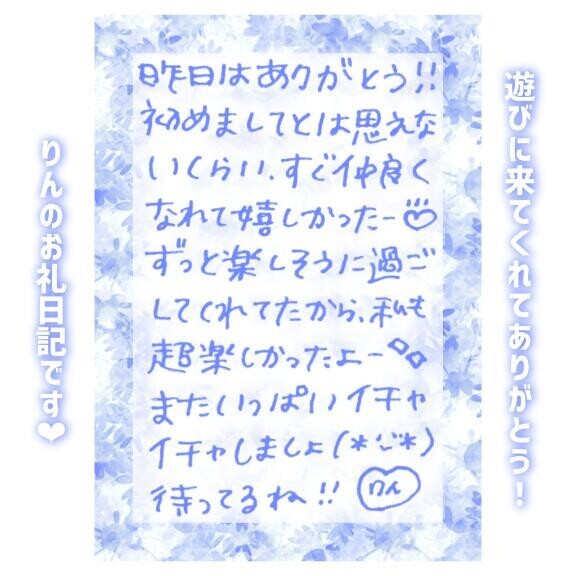 遊びに来てくれてありがとう！
昨日はありがとう!!
初めましてとは思えな
いくらい、すぐ仲良く
なれて嬉しかったー
ずっと楽しそうに過ご
してくれてたから、私も
超楽しかったよー
またいっぱいイチャ
イチャしましょ(*ˊᵕˋ*)
待ってるね!! りん
りんのお礼日記です❤